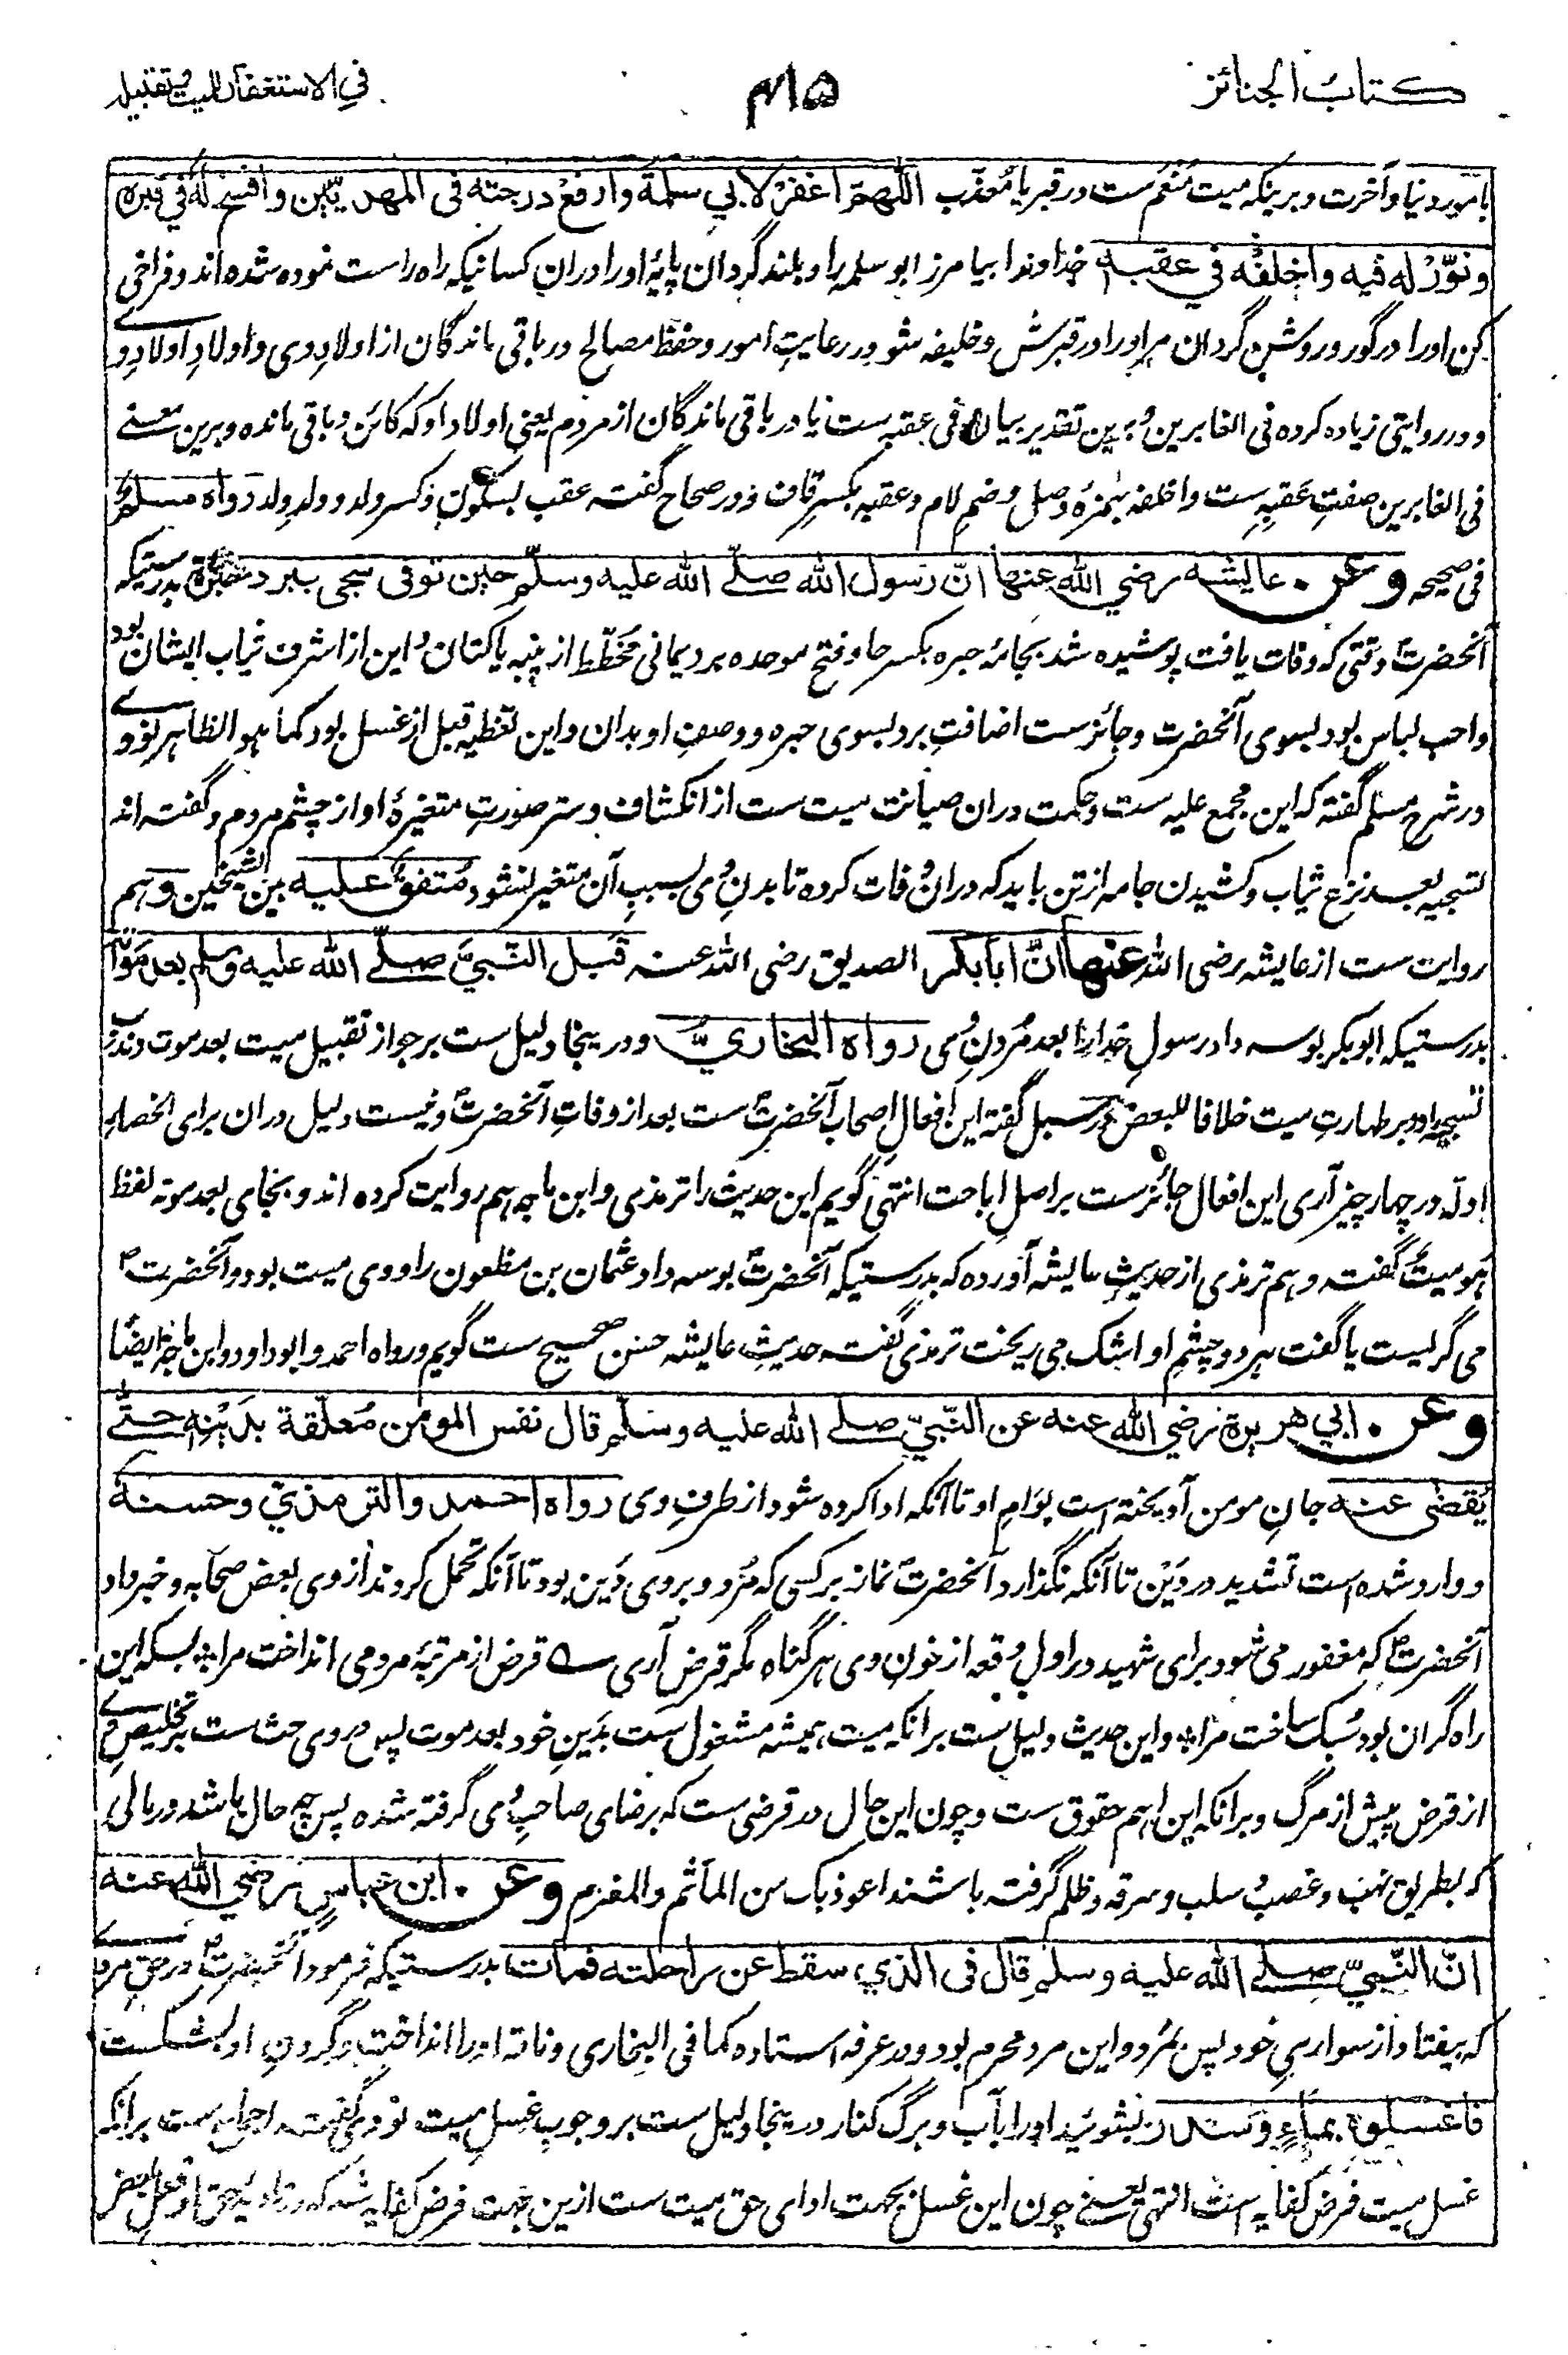 كتاب الجنائز
۴۱۵
في الاستغفار للميت وتقبيله
بامور دنیا وآخرت وبرینکه میت منعم ست در قبر یا معذب اللهم اغفر لابي سلمة وارفع درجته فى المهديين وافسح له في قبره
ونور له فيه واخلفه في عقبه خداوندا بیامرز ابو سلمه را و بلند گردان پایهٔ او را دران کسانیکه راه راست نموده شده اند و فراخی
کن او را در گور و روشن گردان مر او را در قبرش و خلیفه شو در رعایتِ امور و حفظ مصالح در باقی ماندگان از اولادِ وی و اولادِ اولادِ وے
و در روایتی زیاده کرده فی الغابرین و برین تقدیر بیان فی عقبه ست یا در باقی ماندگان از مردم یعنی اولاد او که کائن و باقی مانده و برین معنے
فی الغابرین صفتِ عقبه ست و اخلفه بهمزهٔ وصل و ضم لام و عقبه بکسر قاف و در صحاح گفته عقب بسکون و کسر ولد و ولدِ ولد رواه مسلم
فی صحیحه وعن عايشة رضي الله عنها ان رسول الله صلى الله عليه وسلم حين توفى سجى ببرد حبرة بدرستیکه
آنحضرت وقتی که وفات یافت پوشیده شد بجامهٔ حبره بکسر حا و فتح موحده برد یمانی مخطط از پنبه یا کتان و این از اشرف ثیاب ایشان بود
و احب لباس بود بسوی آنحضرت و جائز ست اضافتِ برد بسوی حبره و وصفِ او بدان و این تغطیه قبل از غسل بود کما هو الظاهر نووے
در شرح مسلم گفته که این مجمع علیه ست و حکمت دران صیانت میت ست از انکشاف و ستر صورتِ متغیرهٔ او از چشم مردم و گفته اند
تسجیه بعد نزع ثیاب و کشیدن جامه از تن باید که دران وفات کرده تا بدنِ وی بسببِ آن متغیر نشود متفق عليه بين الشيخين و هم
روایت ست از عایشه رضی الله عنها ان ابابكر الصدیق رضی الله عنه قبل النبي صلى الله عليه وسلم بعد موته
بدرستیکه ابوبکر بوسه داد رسولِ خدا را بعد مُردنِ وی رواه البخاري و درینجا دلیل ست بر جواز تقبیل میت بعد موت و ندب
تسجیه او و بر طهارتِ میت خلافا للبعض در سبل گفته این افعالِ اصحاب آنحضرت ست بعد از وفاتِ آنحضرت و نیست دلیل دران برای انحصارِ
ادله در چهار چیز آری این افعال جائز ست بر اصلِ اباحت انتهی گویم این حدیث را ترمذی و ابن ماجه هم روایت کرده اند و بجای بعد موته لفظ
هو میت گفته و هم ترمذی از حدیثِ عایشه آورده که بدرستیکه آنحضرت بوسه داد عثمان بن مظعون را و وی میت بود و آنحضرت
می گریست یا گفت هر دو چشمِ او اشک می ریخت ترمذی گفته حدیثِ عایشه حسن صحیح ست گویم ورواه احمد و ابوداود و ابن ماجه ایضا
وعن ابي هريرة رضي الله عنه عن النبي صلى الله عليه وسلم قال نفس المومن معلقة بدينه حتى
يقضى عنه جانِ مومن آویخته است بوَامِ او تا آنکه ادا کرده شود از طرفِ وی رواه احمد والترمذي وحسنه
و وارد شده است تشدید در دَین تا آنکه نگذارد آنحضرت نماز بر کسی که مُرد و بر وی دَین بود تا آنکه تحمل کردند از وی بعض صحابه و خبر داد
آنحضرت که مغفور می شود برای شهید در اول دُفعه از خونِ وی هر گناه مگر قرض آری ے قرض از مرتبهٔ مردمی انداخت مرا * بسکه این
راه گران بود سُبک ساخت مرا * و این حدیث دلیل ست برانکه میت همیشه مشغول ست بدَینِ خود بعد موت پس در وی حث ست بر تخلیصِ
از قرض پیش از مرگ و برانکه این اهم حقوق ست و چون این حال در قرضی ست که برضای صاحبِ وی گرفته شده پس چه حال باشد در مالی
که بطریق نهب و غصب و سلب و سرقه و ظلم گرفته باشند اعوذ بک من المأثم والمغرم وعن ابن عباس رضي الله عنه
ان النبي صلى الله عليه وسلم قال فى الذي سقط عن راحلته فمات بدرستیکه فرمود آنحضرت در حقِ مردے
که بیفتاد از سواریِ خود پس بمُرد و این مرد محرم بود و در عرفه استاده کما فی البخاری و ناقه او را انداخت و گردنِ او بشکست
فاغسلوه بماء وسدر بشوئید او را بآب و برگ کنار درینجا دلیل ست بر وجوبِ غسلِ میت نووی گفته اجماع ست برانکه
غسل میت فرض کفایه است انتهی یعنے چون این غسل بجهت ادای حق میت ست ازین جهت فرض کفایه شد که در تادیهٔ حق او فعلِ بعض